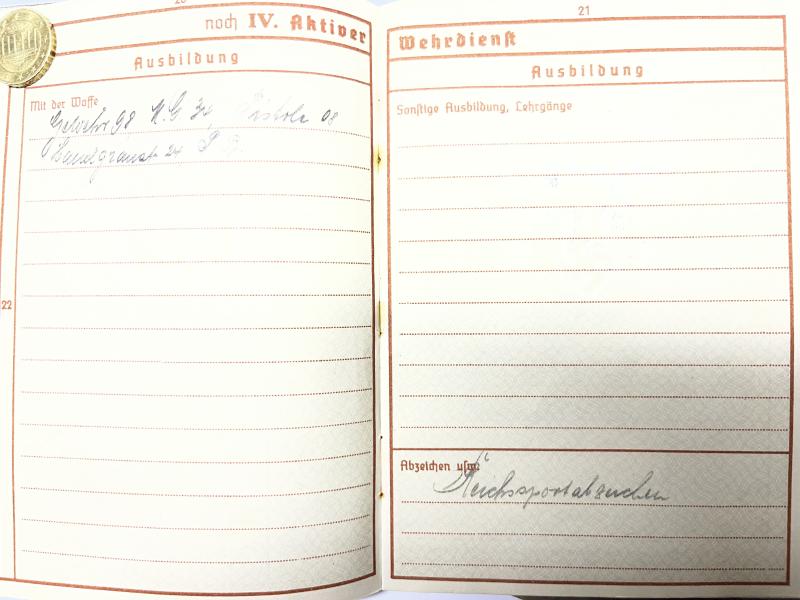 20
noch IV. Aktiver
Ausbildung
22
Mit der Waffe
Gewehr 98 M.G 34, Pistole 08
Handgranate 24
21
Wehrdienst
Ausbildung
Sonstige Ausbildung, Lehrgänge
Abzeichen usw.
Reichssportabzeichen